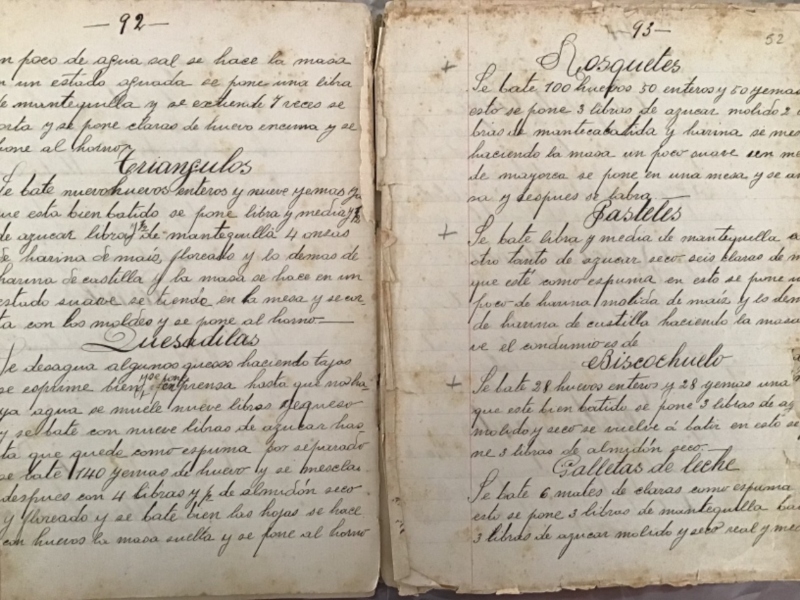 -92-
n poco de agua sal se hace la masa
n un estado aguada se pone una libra
de mantequilla y se extiende 7 veces se
orta y se pone claras de huevo encima y se
pone al horno
Triangulos
Se bate nueve huevos enteros y nueve yemas y
que esta bien batido se pone libra y media
de azucar libra y ½ de mantequilla 4 onsas
de harina de mais, floreado y lo demas de
harina de castilla y la masa se hace en un
estado suave se tiende en la mesa y se cor
ta con los moldes y se pone al horno
Quesadilas
Se desagua algunos quesos haciendo tajas
se esprime bien y se pon en prensa hasta que no ha
ya agua se muele nueve libras de queso
y se bate con nueve libras de azucar has
ta que quede como espuma por separado
se bate 140 yemas de huevo y se mescla
despues con 4 libras y ½ de almidón seco
y floreado y se bate bien las hojas se hace
con huevos la masa suelta y se pone al horno
-93-
52
Rosquetes
Se bate 100 huevos 50 enteros y 50 yemas
esto se pone 3 libras de azucar molido 2
bras de manteca batida y harina se mes
haciendo la masa un poco suave
de mayorca se pone en una mesa y se a
na y despues se labra
Pasteles
Se bate libra y media de mantequilla
otro tanto de azucar seco seis claras de
que esté como espuma en esto se pone u
poco de harina molida de maiz y lo dem
de harina de castilla haciendo la masa
ve el condumio es de
Biscochuelo
Se bate 28 huevos enteros y 28 yemas una
que este bien batido se pone 3 libras de az
molido y seco se vuelve á batir en esto se
ne 3 libras de almidón seco
Galletas de leche
Se bate 6 mates de claras como espuma
esto se pone 3 libras de mantequilla ba
3 libras de azucar molido y seco real y med